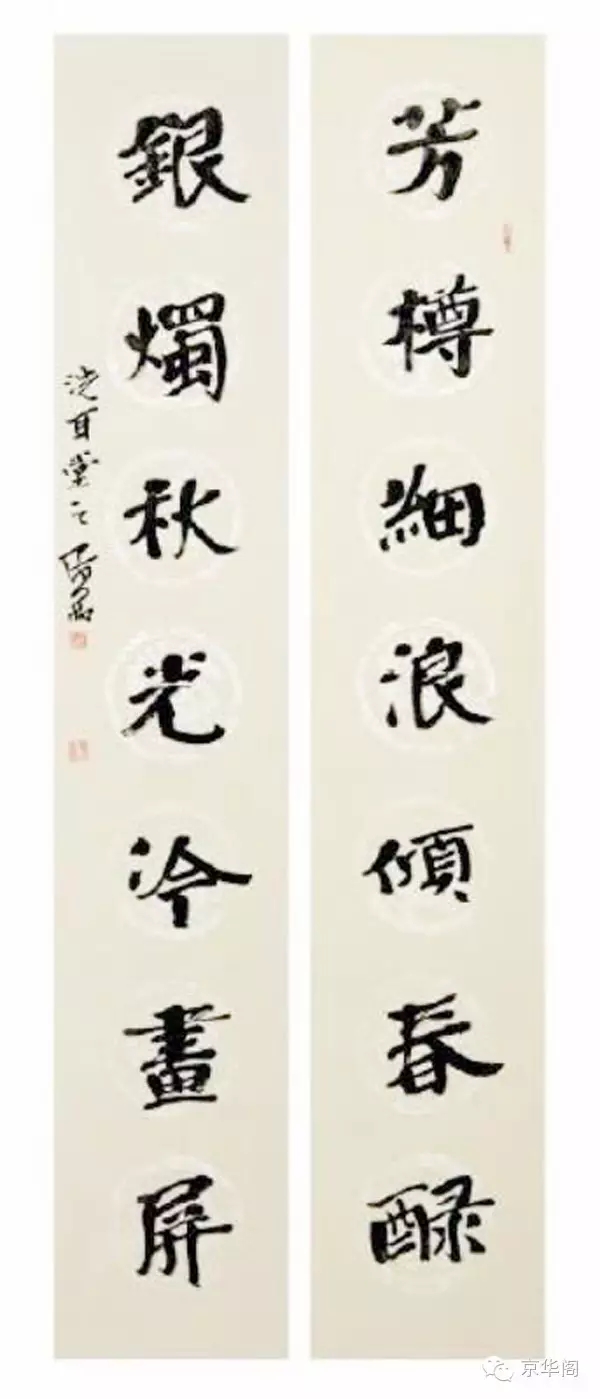 芳樽細浪傾春醁
銀燭秋光冷畫屏
洗耳堂主
京华阁